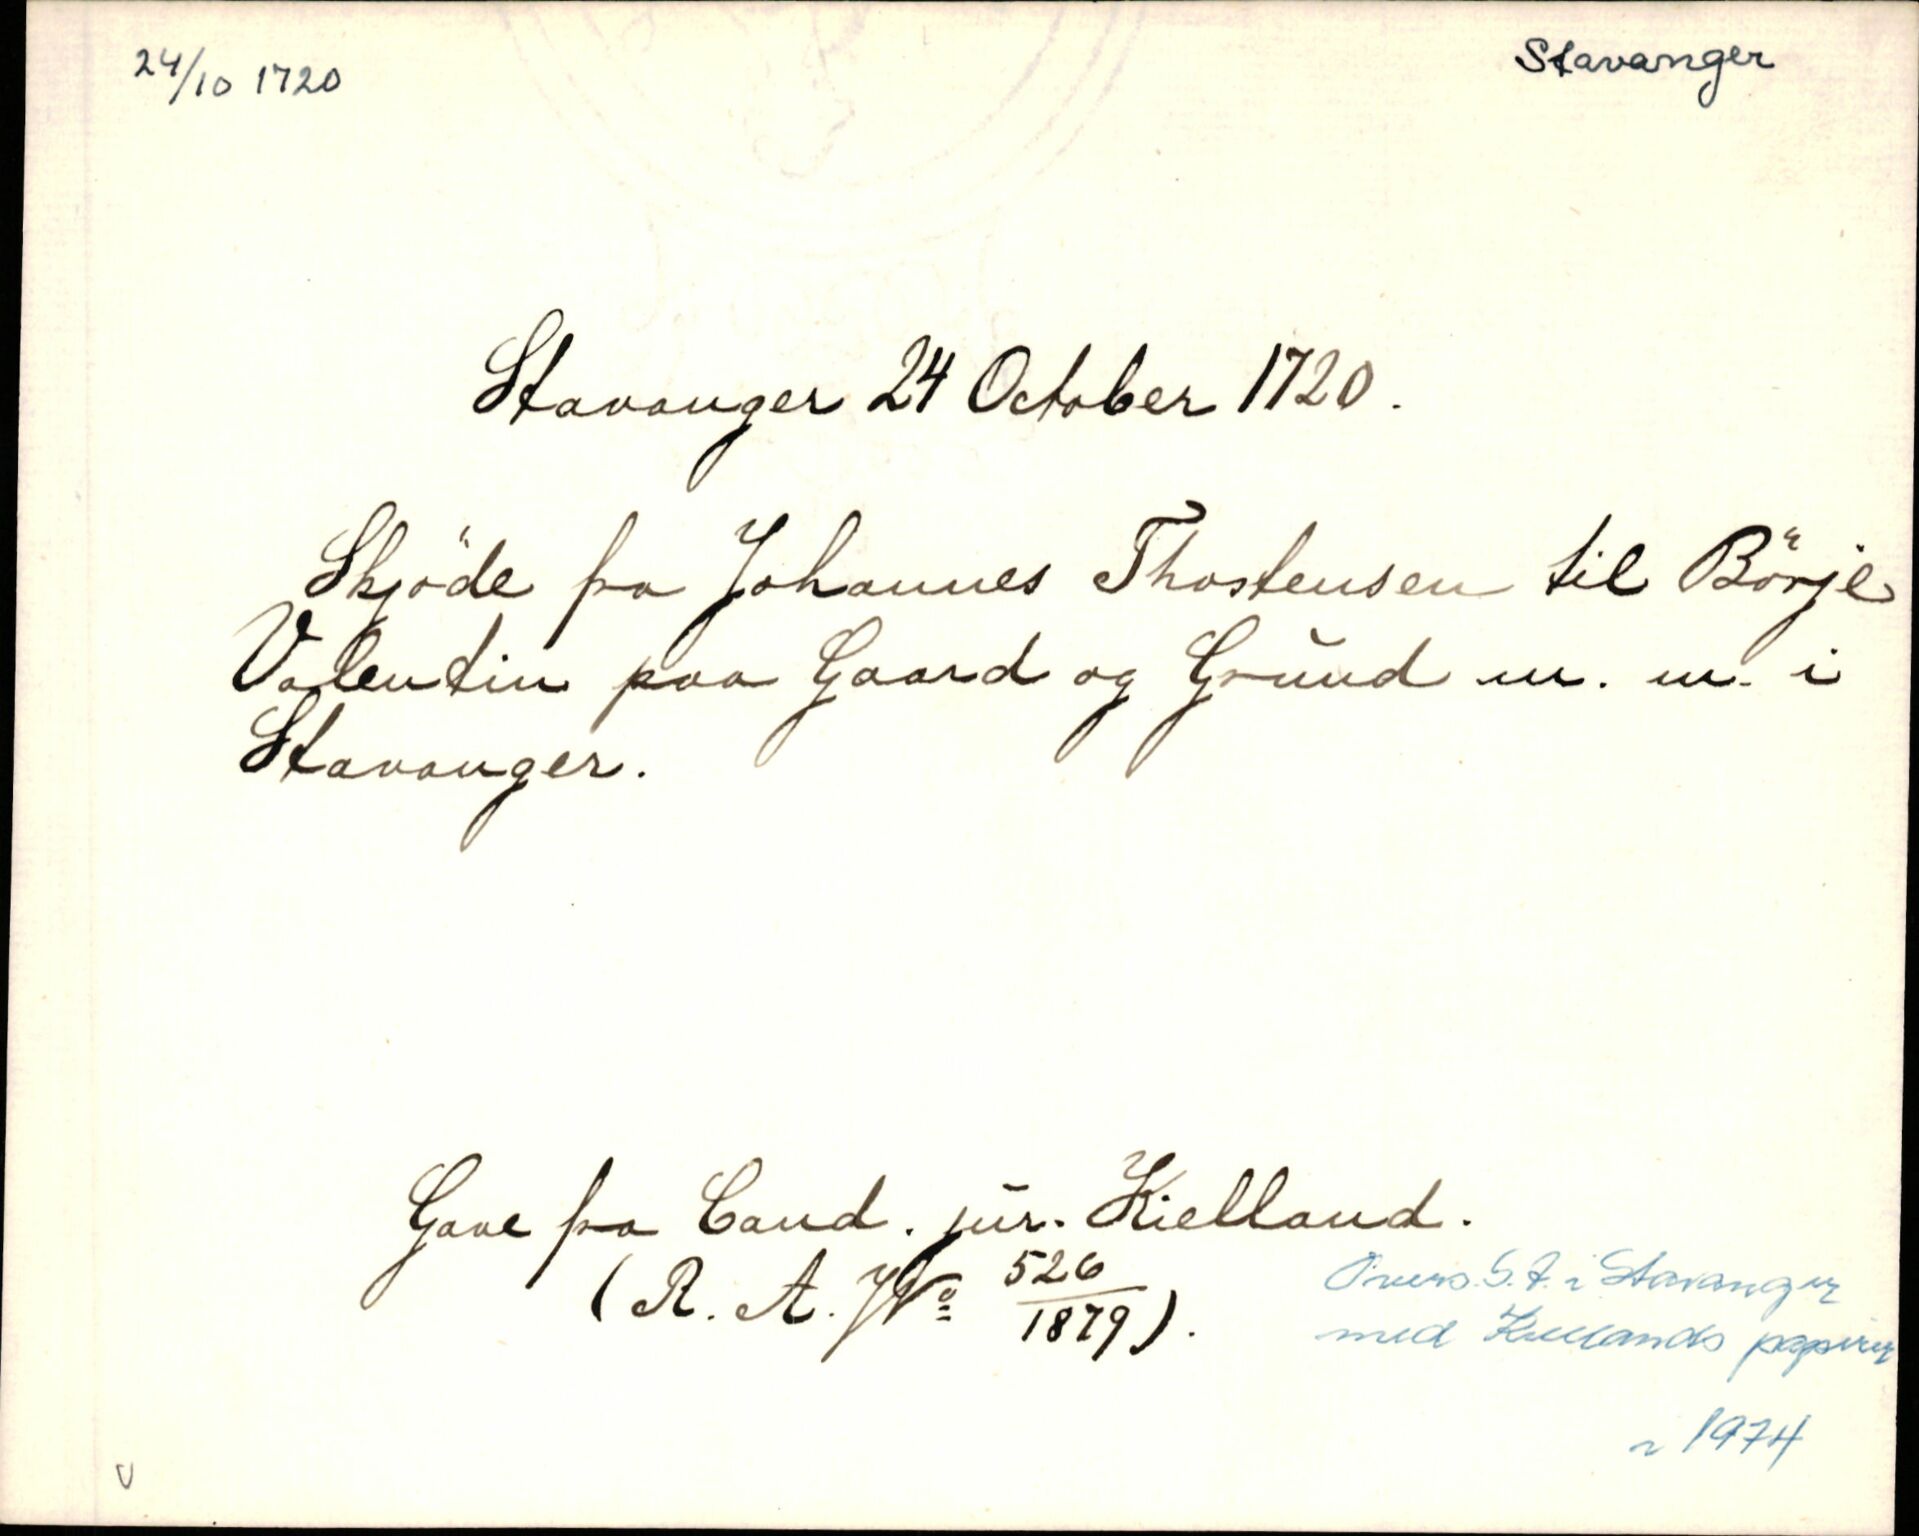 24/10 1720
Stavanger
Stavanger 24 October 1720.
Skjöde fra Johannes Thostensen til Börje
Valentin paa Gaard og Grŭnd m. m. i
Stavanger.
Gave fra Cand. jŭr. Kielland.
(R. A. No 526/1879).
Overs. S.A. i Stavanger
med Kiellands papirer
i 1974
V